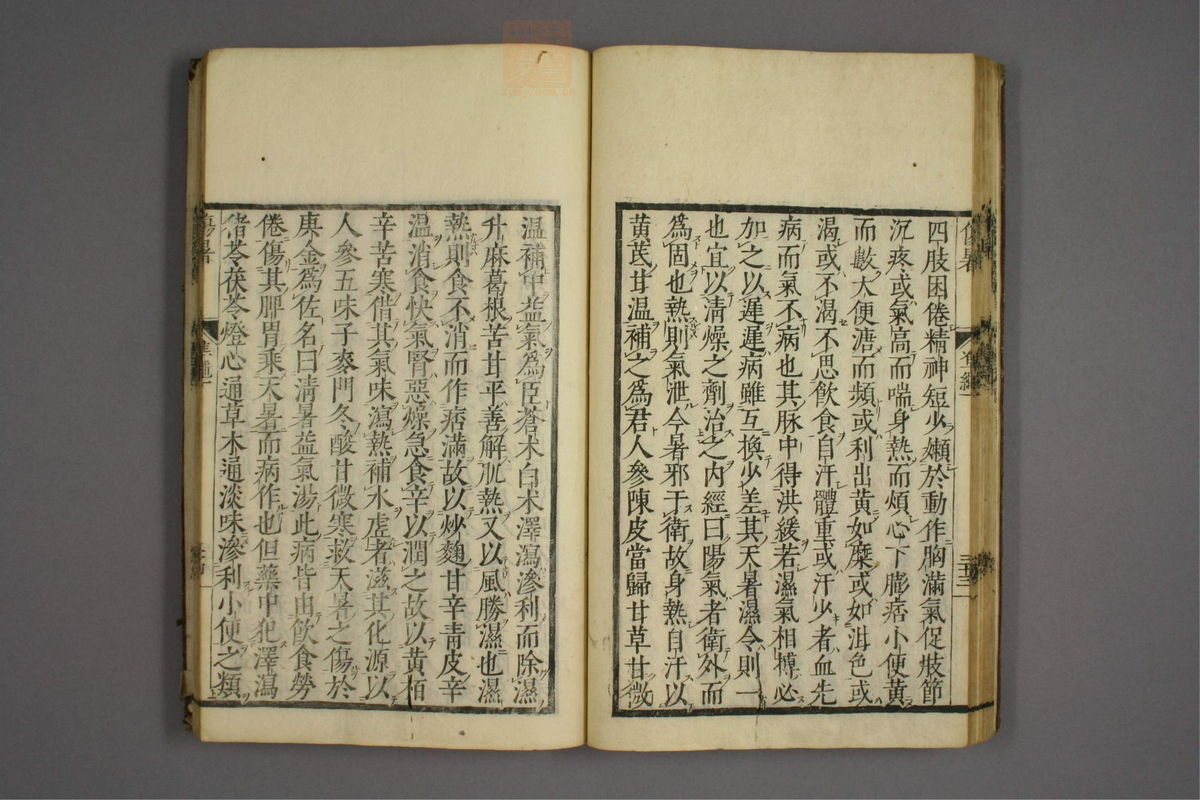 四肢困倦精神短少嬾於動作胸滿氣促肢節
沉疼或氣高而喘身熱而煩心下膨痞小便黄
而數大便溏而頻或利出黄如糜或如泔色或
渴或不渴不思飲食自汗體重或汗少者血先
病而氣不病也其脉中得洪緩若濕氣相搏必
加之以遲遲病雖互換少差其天暑濕令則一
也宜以清燥之劑治之内經曰陽氣者衛外而
爲固也熱則氣泄今暑邪于衛故身熱自汗以
黄芪甘温補之爲君人參陳皮當歸甘草甘微
温補中益氣爲臣蒼术白术澤瀉滲利而除濕
升麻葛根苦甘平善解肌熱又以風勝濕也濕
熱則食不消而作痞滿故以炒麴甘辛青皮辛
温消食快氣腎惡燥急食辛以潤之故以黄栢
辛苦寒借其氣味瀉熱補水虚者滋其化源以
人參五味子麥門冬酸甘微寒救天暑之傷於
庚金爲佐名曰清暑益氣湯此病皆由飲食勞
倦傷其脾胃乘天暑而病作也但藥中犯澤瀉
猪苓茯苓燈心通草木通淡味滲利小便之類
傷暑